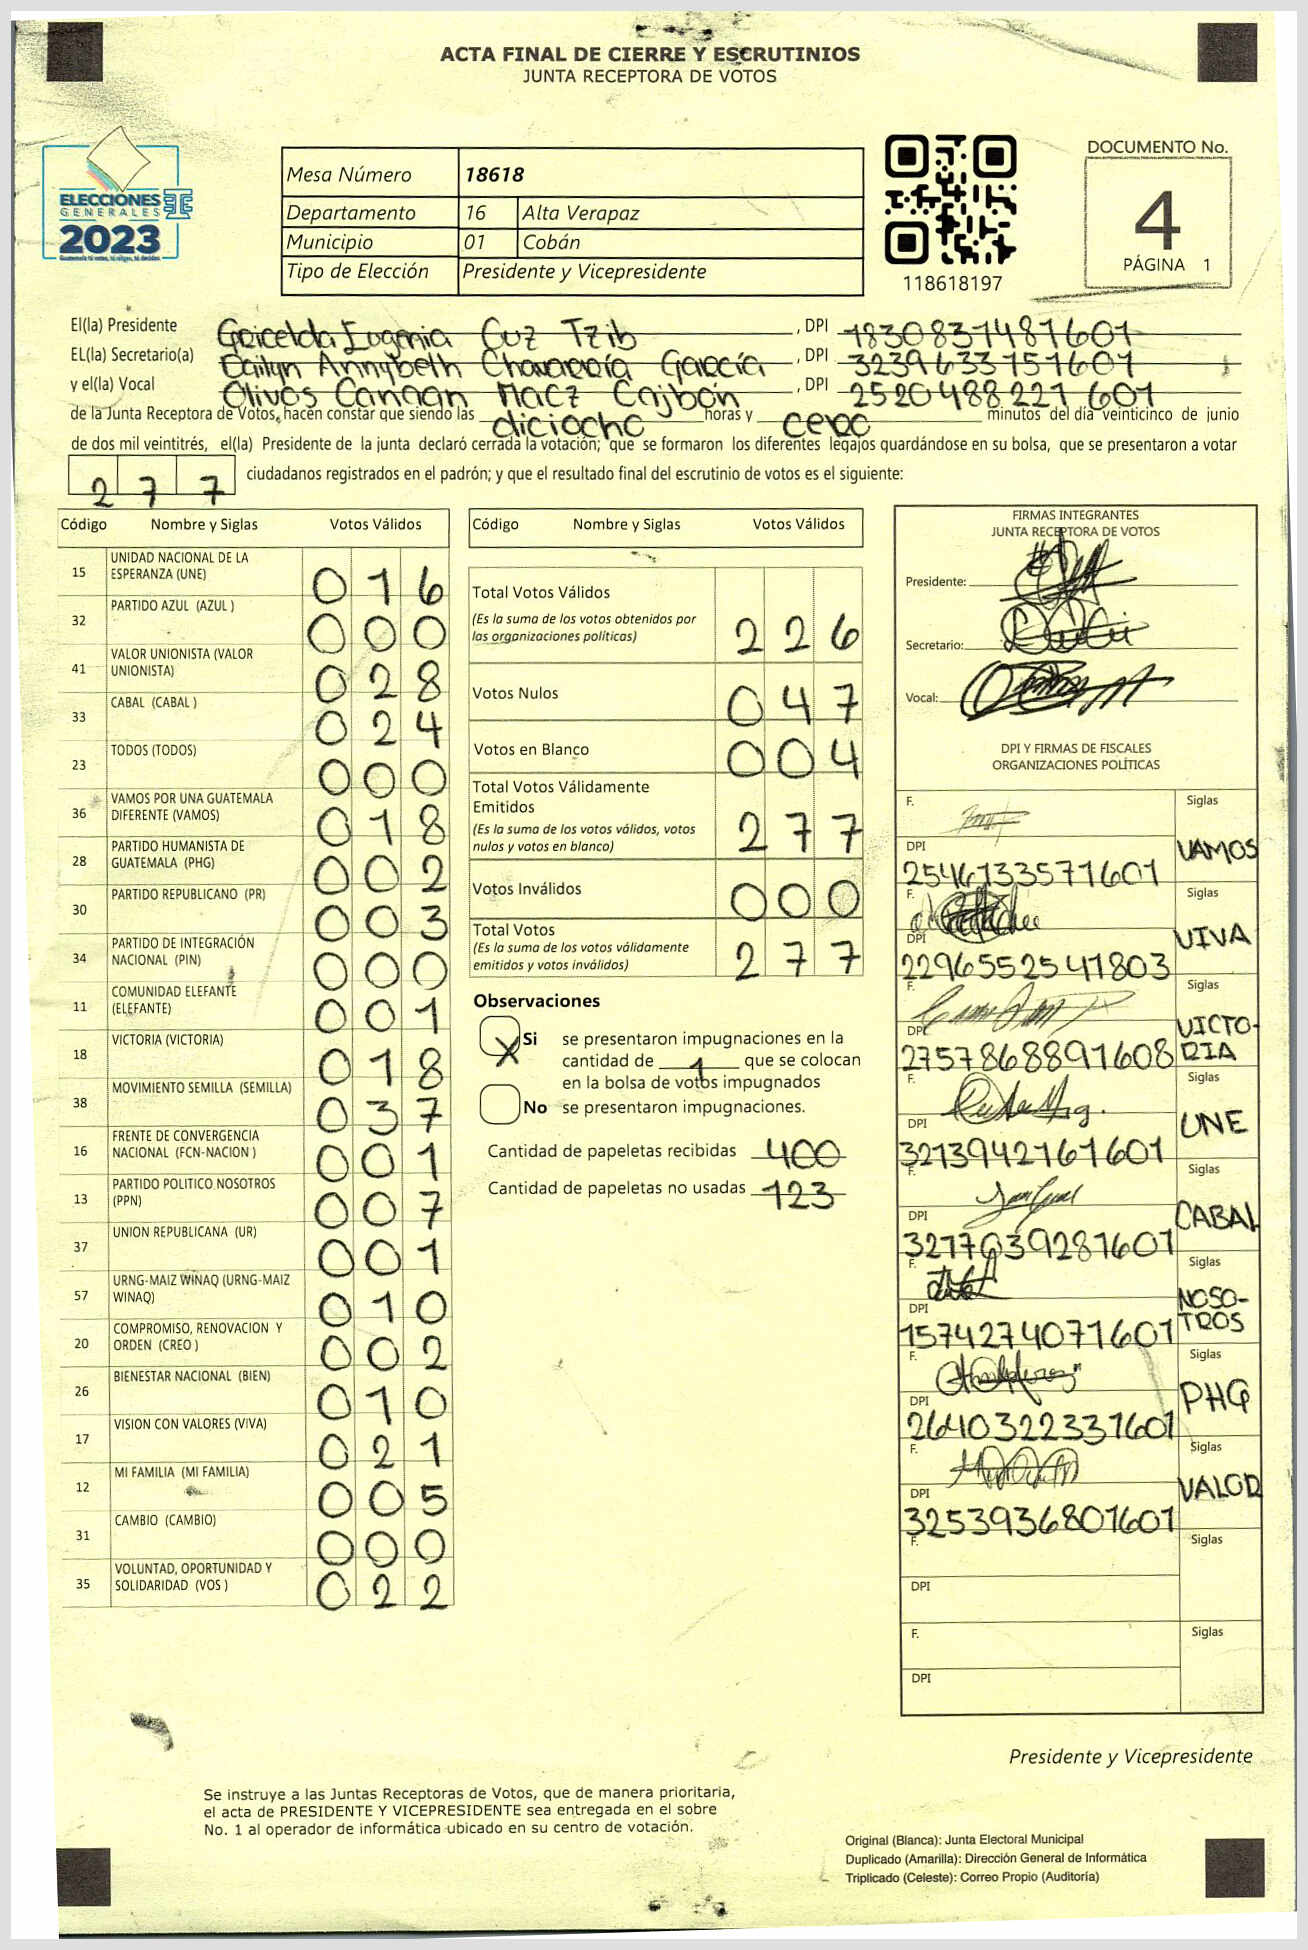 ACTA FINAL DE CIERRE Y ESCRUTINIOS
JUNTA RECEPTORA DE VOTOS
ELECCIONES
GENERALES
2023
Mesa Número 18618
Departamento 16 Alta Verapaz
Municipio 01 Cobán
Tipo de Elección Presidente y Vicepresidente
118618197
DOCUMENTO No.
4
PÁGINA 1
El(la) Presidente Gricelda Eugenia Cuz Tzib, DPI 1830831481601
EL(la) Secretario(a) Dailyn Annybeth Chavarría García, DPI 3239633751601
y el(la) Vocal Olivos Canaan Macz Cajbón, DPI 2520488221601
de la Junta Receptora de Votos, hacen constar que siendo las diciocho horas y cero minutos del día veinticinco de junio
de dos mil veintitrés, el(la) Presidente de la junta declaró cerrada la votación; que se formaron los diferentes legajos guardándose en su bolsa, que se presentaron a votar
277 ciudadanos registrados en el padrón; y que el resultado final del escrutinio de votos es el siguiente:
Código Nombre y Siglas Votos Válidos
15 UNIDAD NACIONAL DE LA ESPERANZA (UNE) 016
32 PARTIDO AZUL (AZUL ) 000
41 VALOR UNIONISTA (VALOR UNIONISTA) 028
33 CABAL (CABAL ) 024
23 TODOS (TODOS) 000
36 VAMOS POR UNA GUATEMALA DIFERENTE (VAMOS) 018
28 PARTIDO HUMANISTA DE GUATEMALA (PHG) 002
30 PARTIDO REPUBLICANO (PR) 003
34 PARTIDO DE INTEGRACIÓN NACIONAL (PIN) 000
11 COMUNIDAD ELEFANTE (ELEFANTE) 001
18 VICTORIA (VICTORIA) 018
38 MOVIMIENTO SEMILLA (SEMILLA) 037
16 FRENTE DE CONVERGENCIA NACIONAL (FCN-NACION ) 001
13 PARTIDO POLITICO NOSOTROS (PPN) 007
37 UNION REPUBLICANA (UR) 001
57 URNG-MAIZ WINAQ (URNG-MAIZ WINAQ) 010
20 COMPROMISO, RENOVACION Y ORDEN (CREO ) 002
26 BIENESTAR NACIONAL (BIEN) 010
17 VISION CON VALORES (VIVA) 021
12 MI FAMILIA (MI FAMILIA) 005
31 CAMBIO (CAMBIO) 000
35 VOLUNTAD, OPORTUNIDAD Y SOLIDARIDAD (VOS ) 022
Código Nombre y Siglas Votos Válidos
Total Votos Válidos
(Es la suma de los votos obtenidos por las organizaciones políticas) 226
Votos Nulos 047
Votos en Blanco 004
Total Votos Válidamente Emitidos
(Es la suma de los votos válidos, votos nulos y votos en blanco) 277
Votos Inválidos 000
Total Votos
(Es la suma de los votos válidamente emitidos y votos inválidos) 277
Observaciones
X Si se presentaron impugnaciones en la
cantidad de 1 que se colocan
en la bolsa de votos impugnados
No se presentaron impugnaciones.
Cantidad de papeletas recibidas 400
Cantidad de papeletas no usadas 123
FIRMAS INTEGRANTES
JUNTA RECEPTORA DE VOTOS
Presidente:
Secretario:
Vocal:
DPI Y FIRMAS DE FISCALES
ORGANIZACIONES POLÍTICAS
F. Siglas
DPI 2546133571601 VAMOS
F. Siglas
DPI 2296552541803 VIVA
F. Siglas
DPI 2757868891608 VICTO-
RIA
F. Siglas
DPI 3213942161601 UNE
F. Siglas
DPI 3217039281601 CABAL
F. Siglas
DPI 1574274071601 NOSO-
TROS
F. Siglas
DPI 2640322331601 PHG
F. Siglas
DPI 3253936801601 VALOR
F. Siglas
DPI
F. Siglas
DPI
Presidente y Vicepresidente
Se instruye a las Juntas Receptoras de Votos, que de manera prioritaria,
el acta de PRESIDENTE Y VICEPRESIDENTE sea entregada en el sobre
No. 1 al operador de informática ubicado en su centro de votación.
Original (Blanca): Junta Electoral Municipal
Duplicado (Amarilla): Dirección General de Informática
Triplicado (Celeste): Correo Propio (Auditoría)